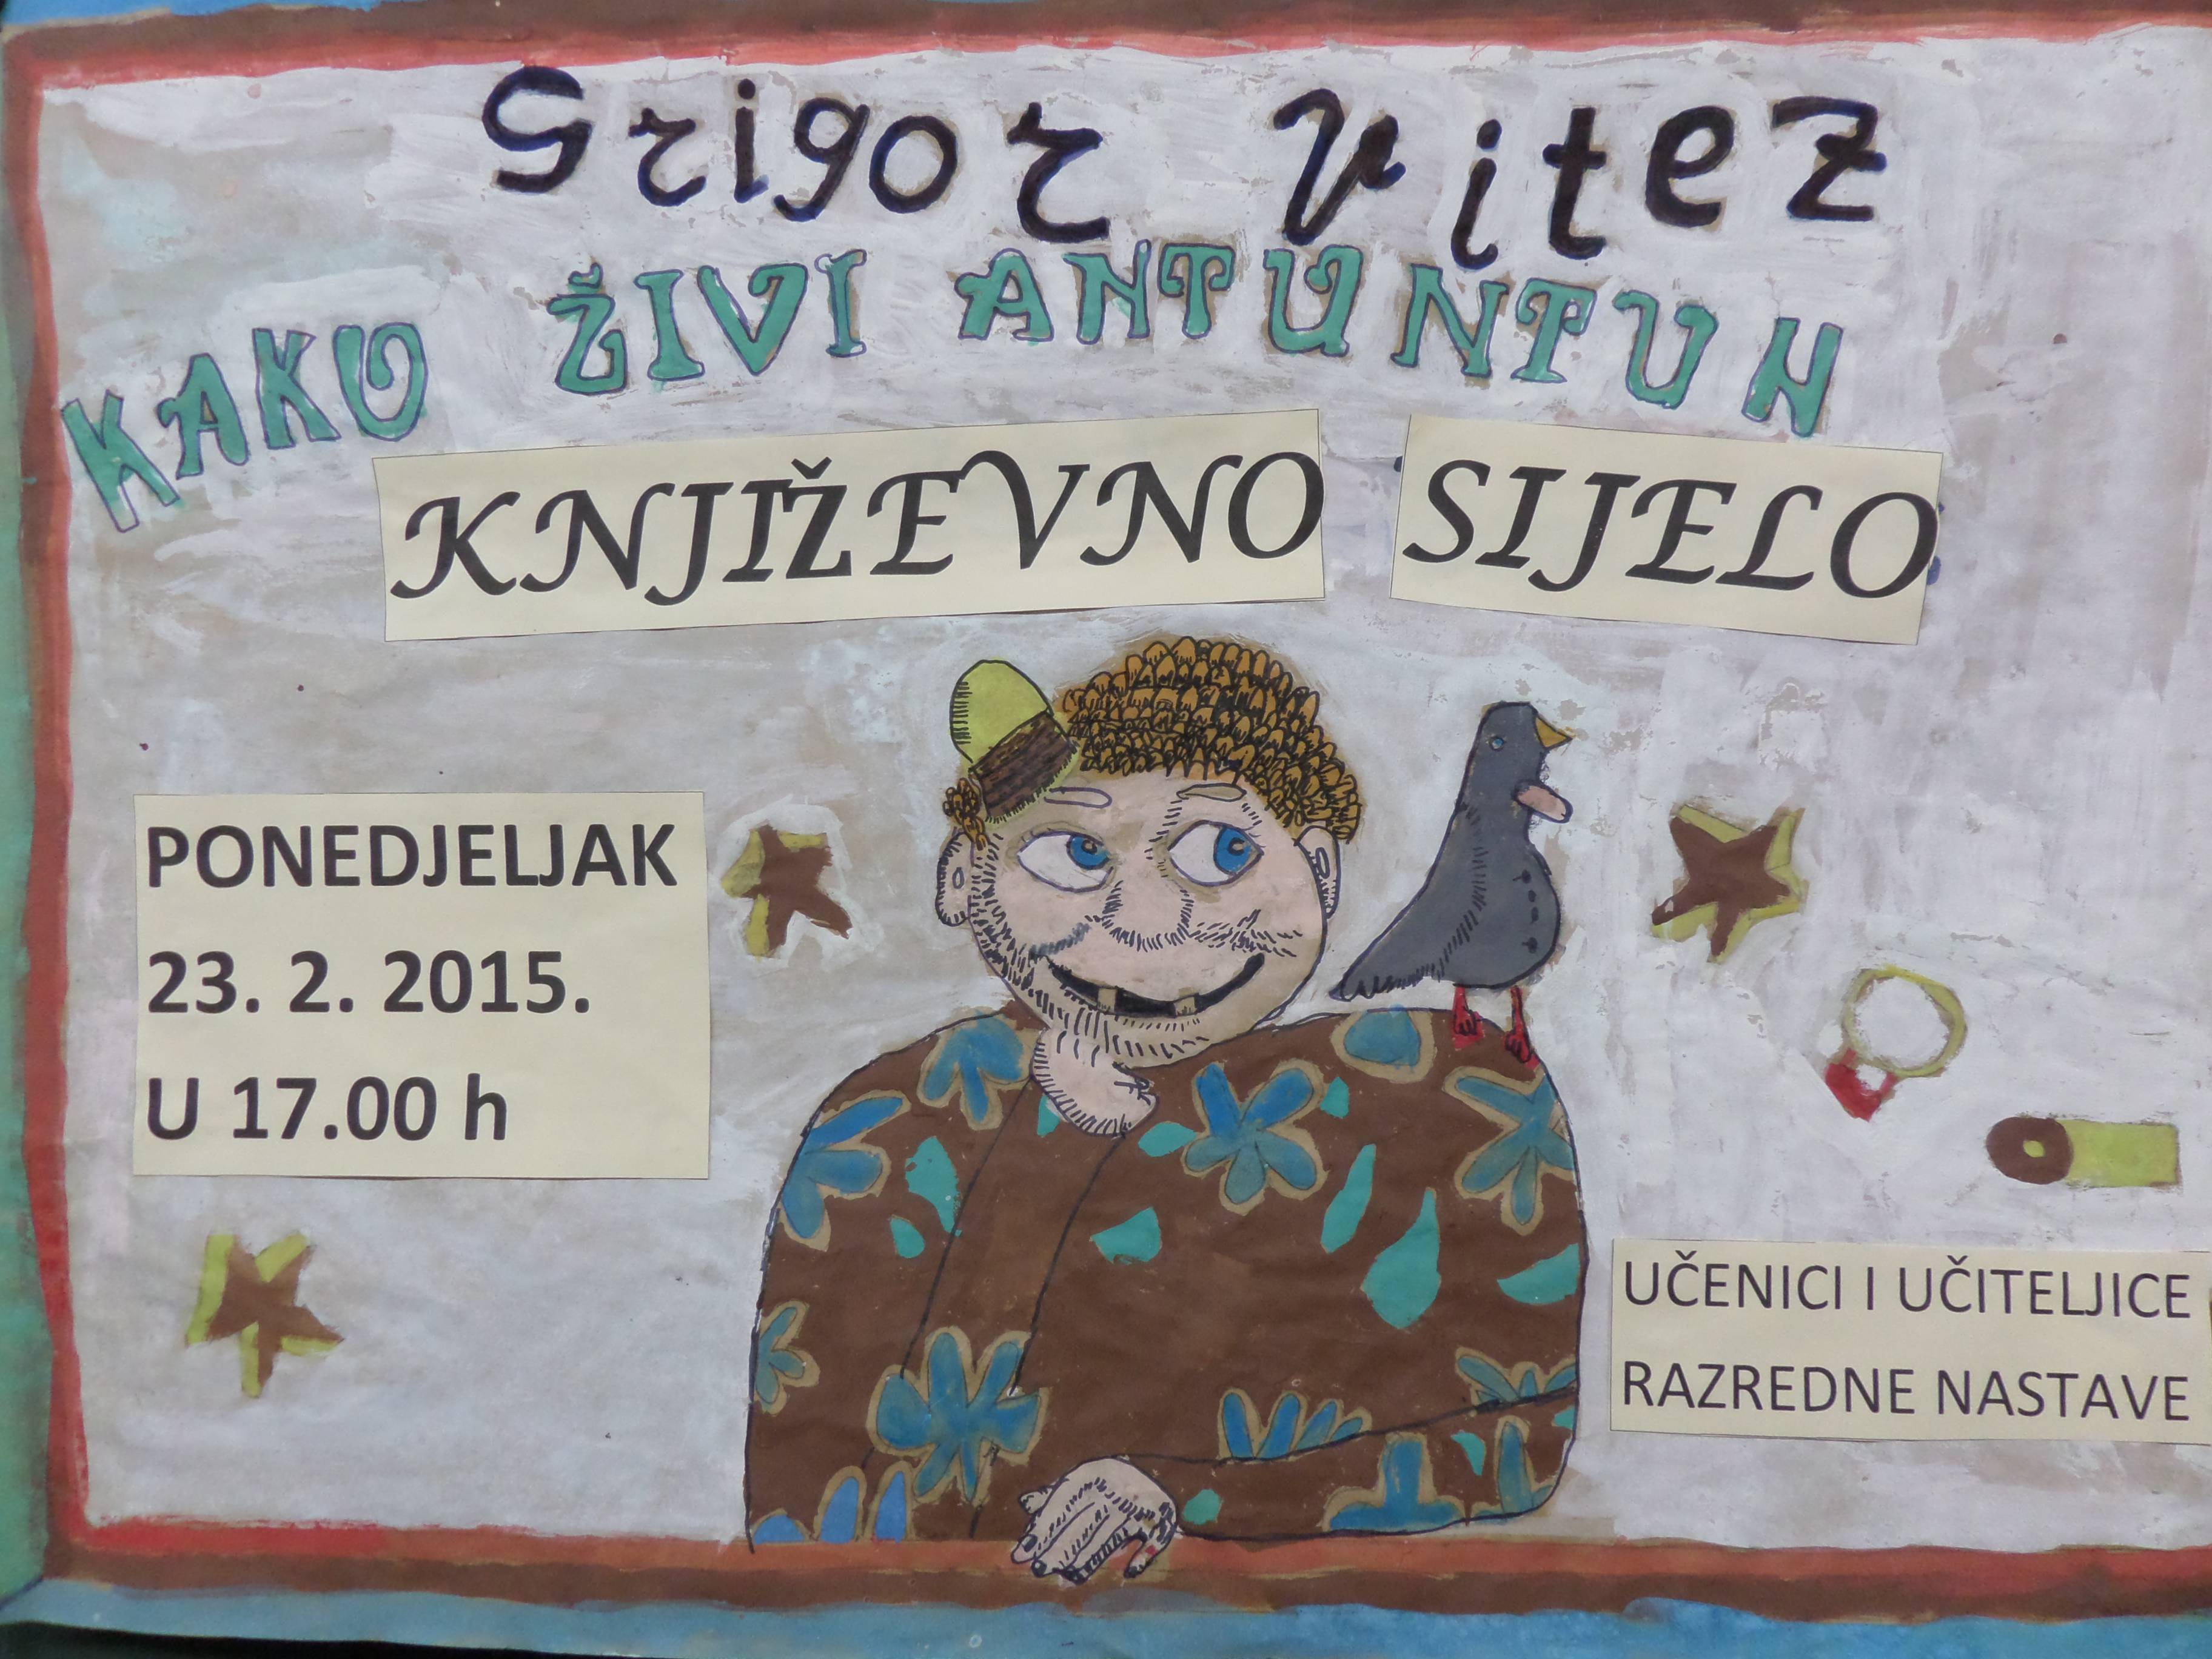 Grigor Vitez
KAKO ŽIVI ANTUNTUN
KNJIŽEVNO SIJELO
PONEDJELJAK
23. 2. 2015.
U 17.00 h
UČENICI I UČITELJICE
RAZREDNE NASTAVE